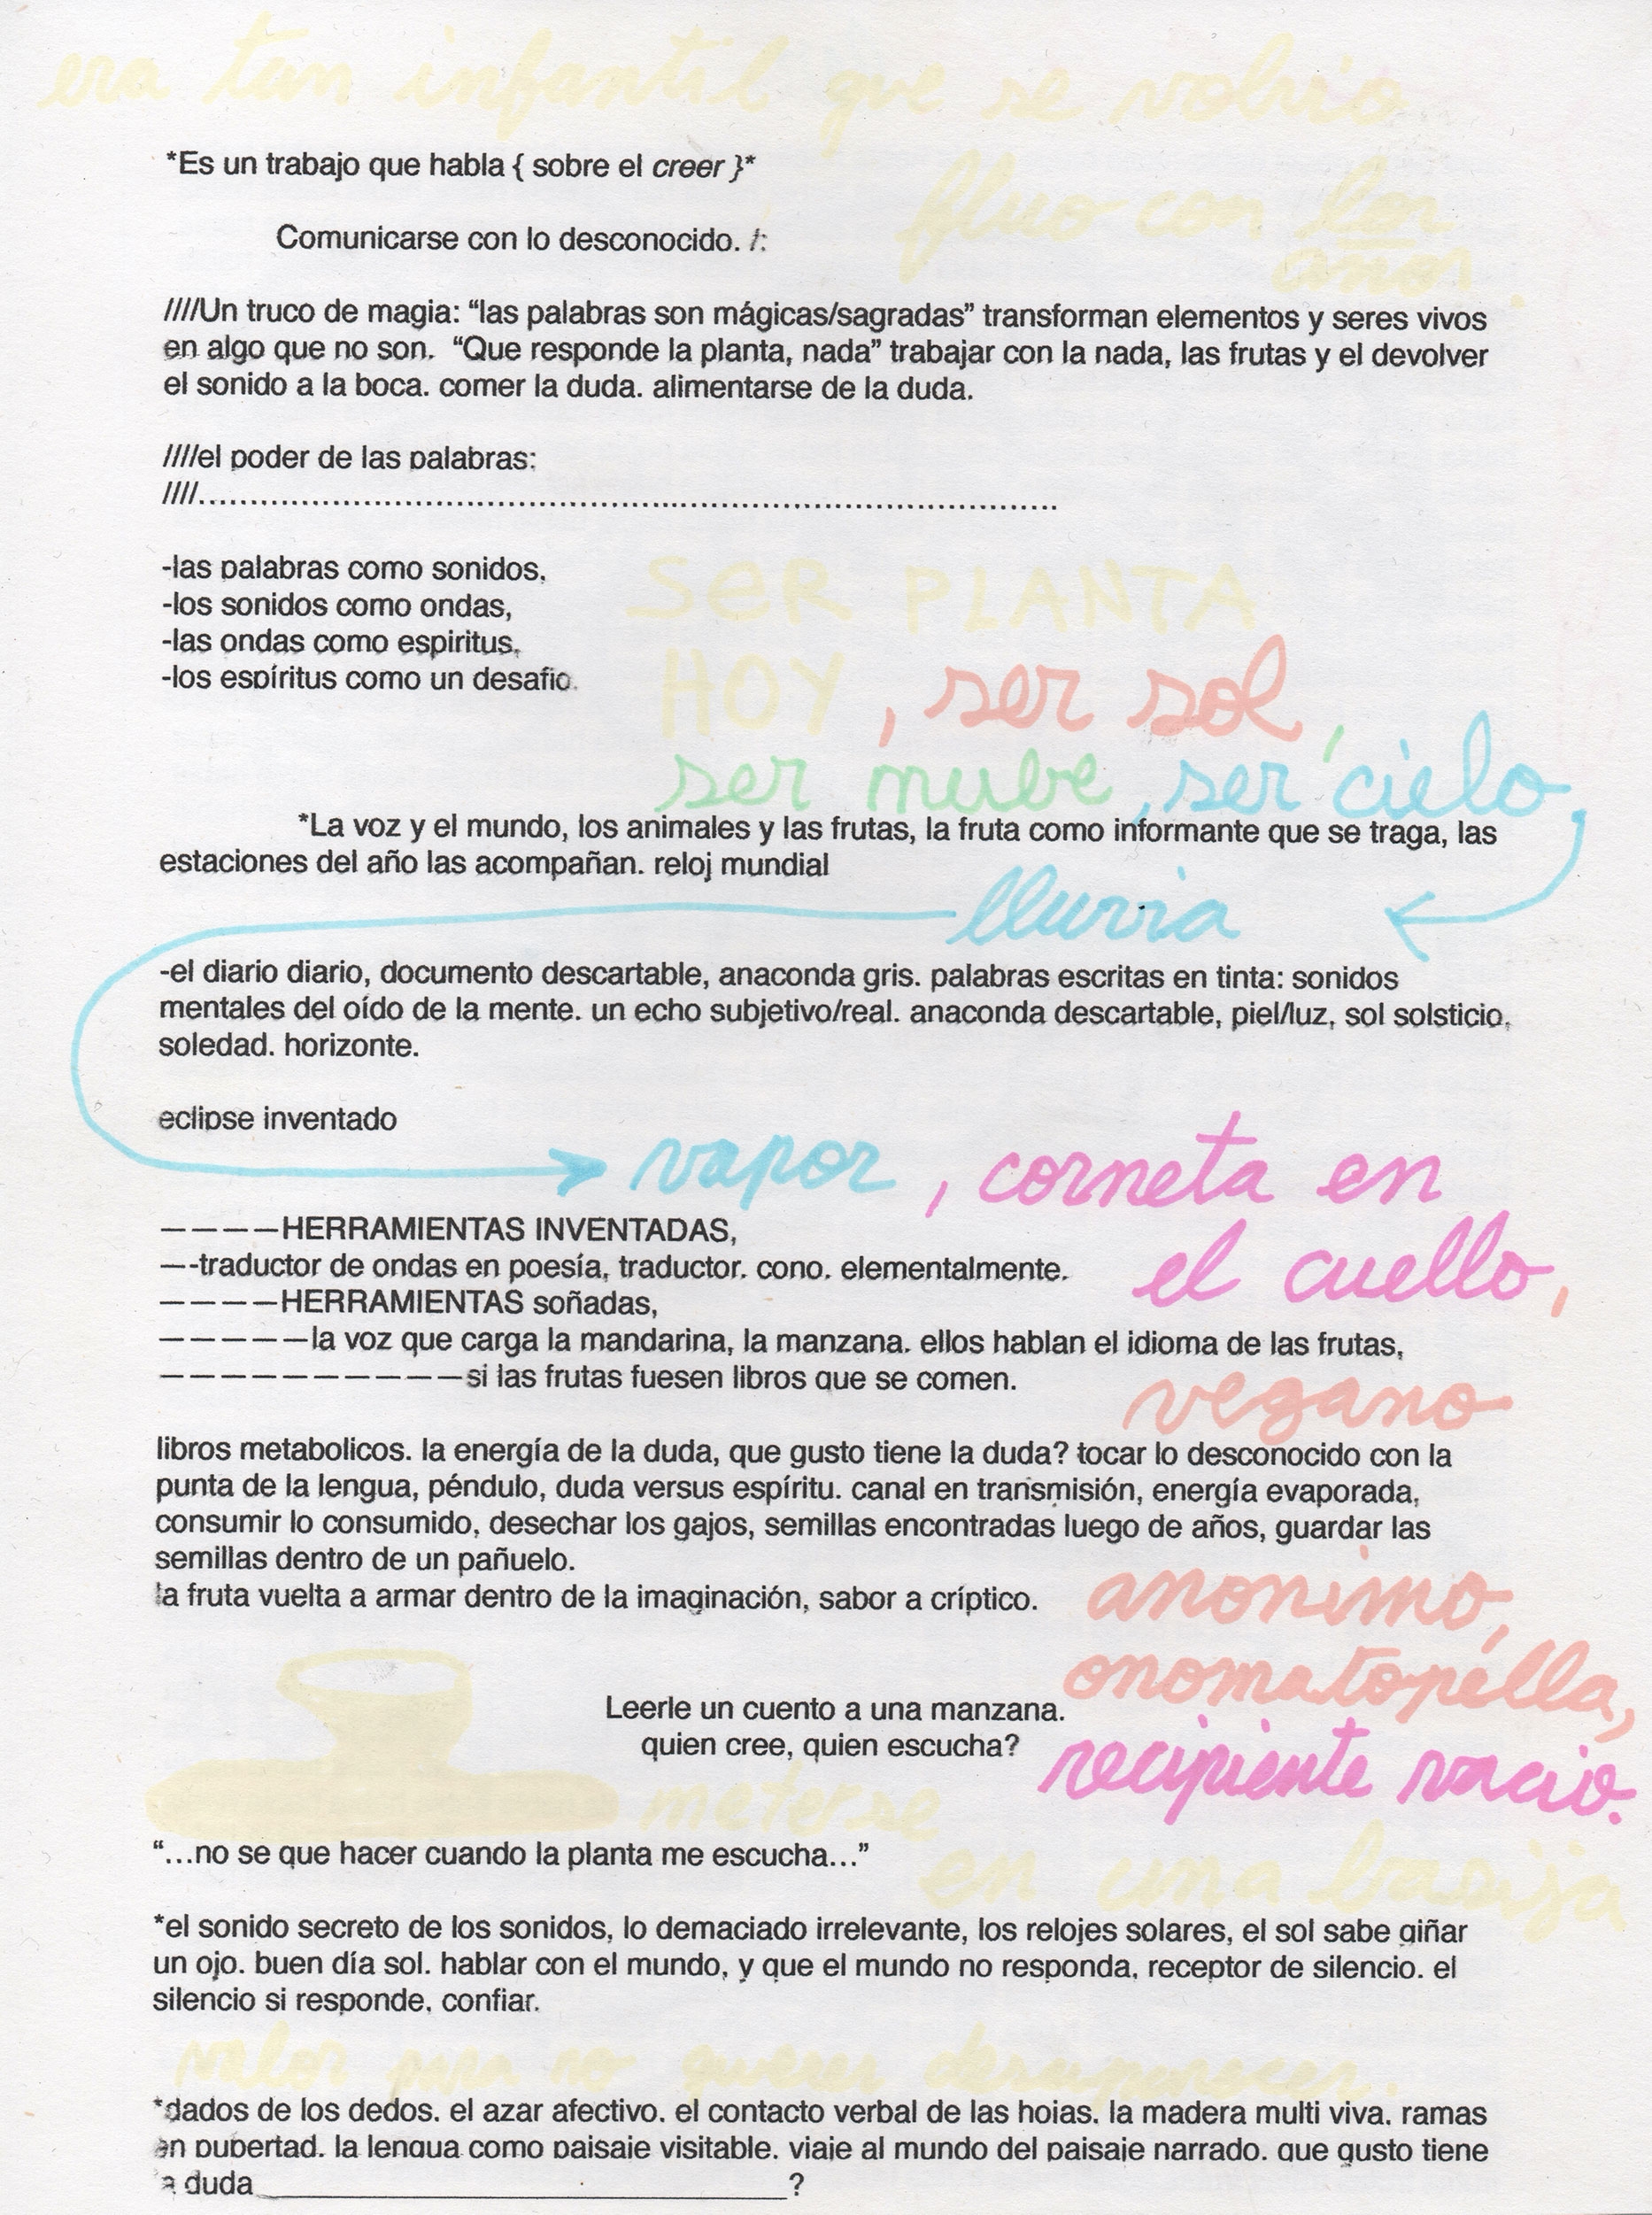 era tan infantil que se volvio
*Es un trabajo que habla { sobre el creer }*
fluo con los
Comunicarse con lo desconocido. /:
años.
////Un truco de magia: “las palabras son mágicas/sagradas” transforman elementos y seres vivos
en algo que no son.  “Que responde la planta, nada” trabajar con la nada, las frutas y el devolver
el sonido a la boca. comer la duda. alimentarse de la duda.
////el poder de las palabras:
////....................................................................................
-las palabras como sonidos,
-los sonidos como ondas,
-las ondas como espiritus,
-los espíritus como un desafio.
SER PLANTA
HOY, ser sol,
ser nube, ser cielo,
*La voz y el mundo, los animales y las frutas, la fruta como informante que se traga, las
estaciones del año las acompañan. reloj mundial
lluvia
-el diario diario, documento descartable, anaconda gris. palabras escritas en tinta: sonidos
mentales del oído de la mente. un echo subjetivo/real. anaconda descartable, piel/luz, sol solsticio,
soledad. horizonte.
eclipse inventado
vapor, corneta en
el cuello,
————HERRAMIENTAS INVENTADAS,
—-traductor de ondas en poesía, traductor. cono. elementalmente.
————HERRAMIENTAS soñadas,
—————la voz que carga la mandarina, la manzana. ellos hablan el idioma de las frutas,
——————————si las frutas fuesen libros que se comen.
vegano
libros metabolicos. la energía de la duda, que gusto tiene la duda? tocar lo desconocido con la
punta de la lengua, péndulo, duda versus espíritu. canal en transmisión, energía evaporada,
consumir lo consumido, desechar los gajos, semillas encontradas luego de años, guardar las
semillas dentro de un pañuelo.
la fruta vuelta a armar dentro de la imaginación, sabor a críptico.
anonimo,
onomatopélla,
Leerle un cuento a una manzana.
quien cree, quien escucha?
recipiente vacio.
meterse
“...no se que hacer cuando la planta me escucha...”
en una basija
*el sonido secreto de los sonidos, lo demaciado irrelevante, los relojes solares, el sol sabe giñar
un ojo. buen día sol. hablar con el mundo, y que el mundo no responda, receptor de silencio. el
silencio si responde, confiar.
valor para no querer desaparecer.
*dados de los dedos. el azar afectivo. el contacto verbal de las hojas. la madera multi viva. ramas
en pubertad. la lengua como paisaje visitable. viaje al mundo del paisaje narrado. que gusto tiene
a duda______________________________?